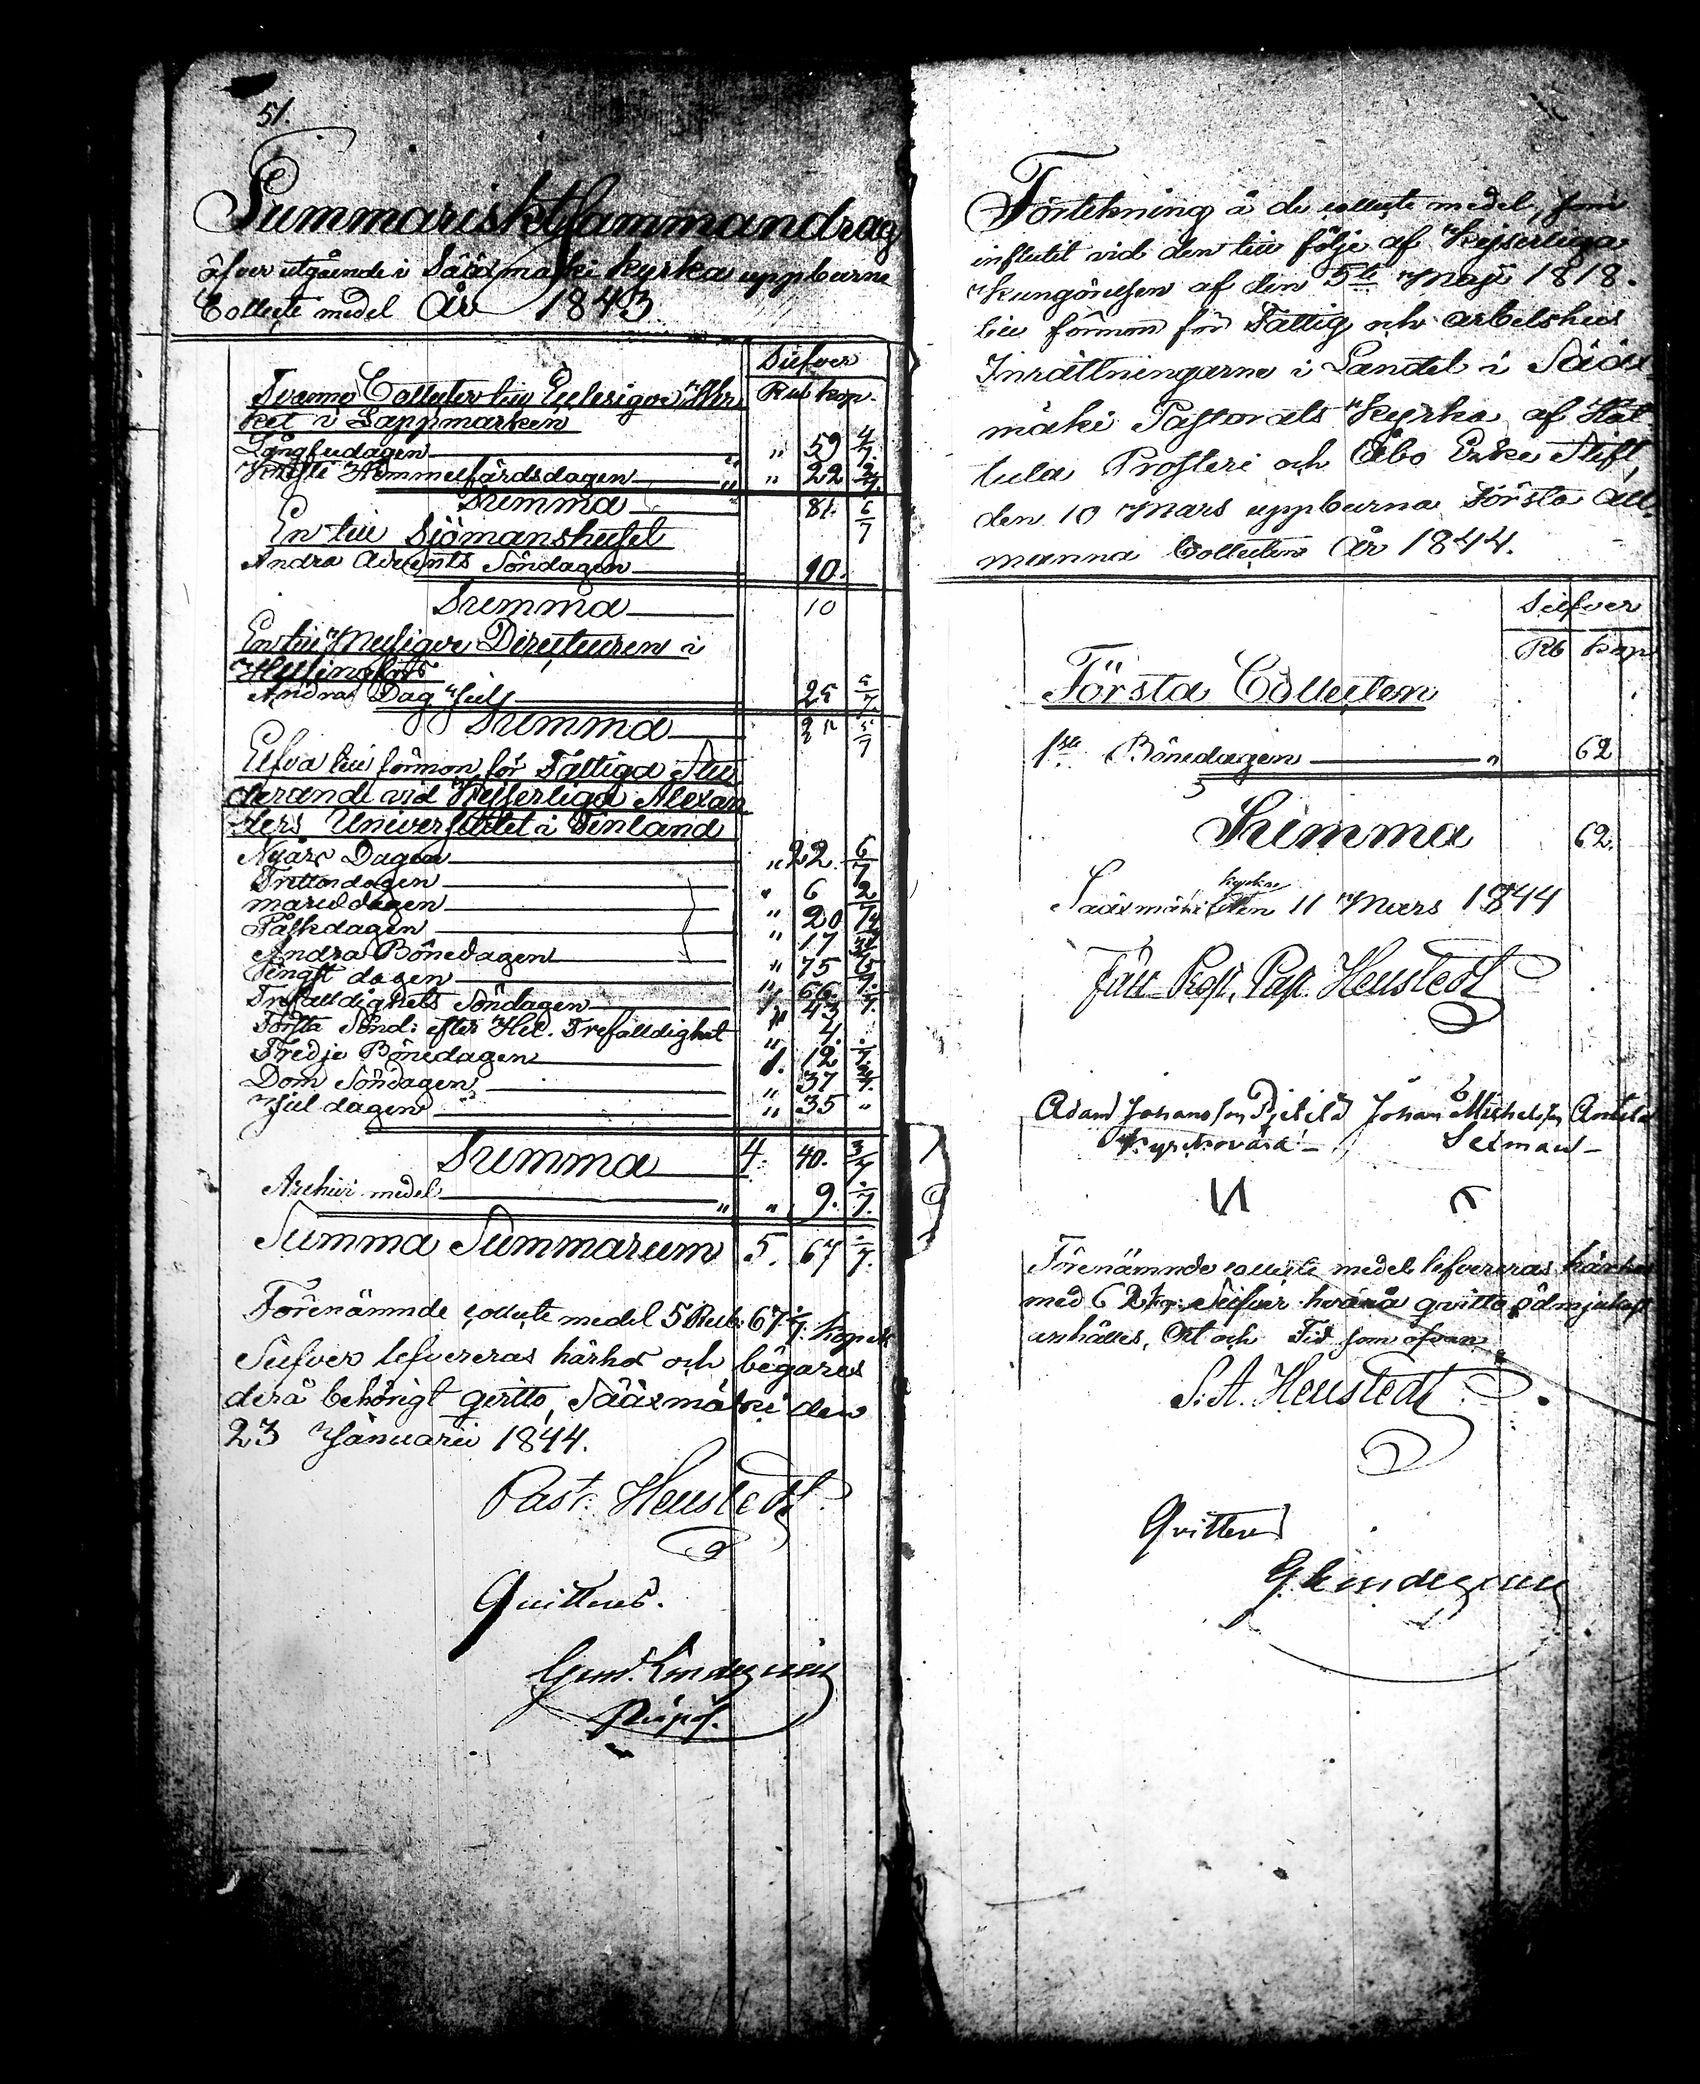 51.
Summariskt Sammandrag
öfver utgående i Sääxmäki kyrka uppburne
Collecte medel År 1843
Silfver
Rub kop.
Tvenne Collecter till Ecclesique Ver
ket i Lappmarken
Långfredagen " 59 4/7.
Christi Himmelfärdsdagen " 22 2/7.
Summa 81. 6/7
En till Sjömanshuset
Andra Advents Söndagen 10.
Summa 10
En till Musique Directeuren i
Helsingfors
Andra Dag Jul 25 5/7.
Summa 25 5/7
Elfva till förmon för Fattiga Stu
derande vid Kejserliga Alexan
ders Universitetet i Finland
Nyårs Dagen " 22. 6/7
Trettondagen " 6 2/7
mariædagen " 20
Påskdagen " 17
Andra Bönedagen " 75
Pingst dagen " 66
Trefalldighets Söndagen 43
Första Sönd: efter Hel. Trefalldighet " 4.
Tredje Bönedagen 1. 12
Dom Söndagen " 37
Jul dagen " 35 "
Summa 4. 40. 3/7
Archivi medel " 9.
Summa Summarum 5. 67
Förenämnde collecte medel 5 Rub: 67 kopek
Silfver lefvereras härhos och begäres
derå behörigt qvitto, Sääxmäki den
23 Januarii 1844.
Past: Heustedt
Quitteras.
Förtekning å de collecte medel, som
influtit vid den till följe af Kejserliga
Kungörelsen af den 5te Maji 1818.
till förmon för Fattig och arbetshus
Inrättningarne i Landet i Sääx
mäki Pastorats Kyrka af Hat
tula Prosteri och Åbo Erke Stift,
den 10 Mars uppburna Första All
manna Collecten År 1844.
Silfver
Rb kop
Första Collecten
1sta Bönedagen " 62
Summa 62.
kyrka
Sääxmäki den 11 Mars 1844
Past. Heustedt
Adam Johansson Johan Michelsson Anttila
Kyrkovärd – Sexman –
Förenämnde collecte medel lefvereras härhos
med 62 kop: Silfver hvarå qvitto ödmjukast
anhålles, Ort och Tid som ofvan
S. A. Heustedt
Qvitteras